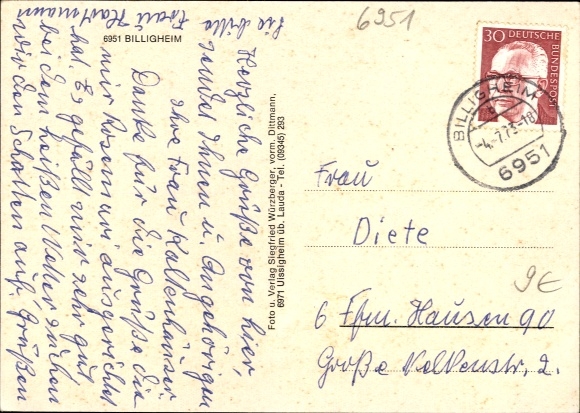 6951
6951 BILLIGHEIM
Herzliche Grüße von hier,
sendet Ihnen u. Angehörigen
Ihre Frau Kaltenhäuser.
Danke für die Grüße die
mir Rosemarie ausgerichtet
hat. Es gefällt mir sehr gut
bei dem heißen Wetter suchen
wir den Schatten auf. Grüßen
Sie bitte
Frau Hartmann
Foto u. Verlag Siegfried Würzberger, vorm. Dittmann,
6971 Uissigheim üb. Lauda - Tel. (09345) 293
30
DEUTSCHE
BUNDESPOST
BILLIGHEIM
-4.-7.73-18
6951
Frau
Diete
9€
6 Ffm. Hausen 90
Große Nelkenstr. 2.